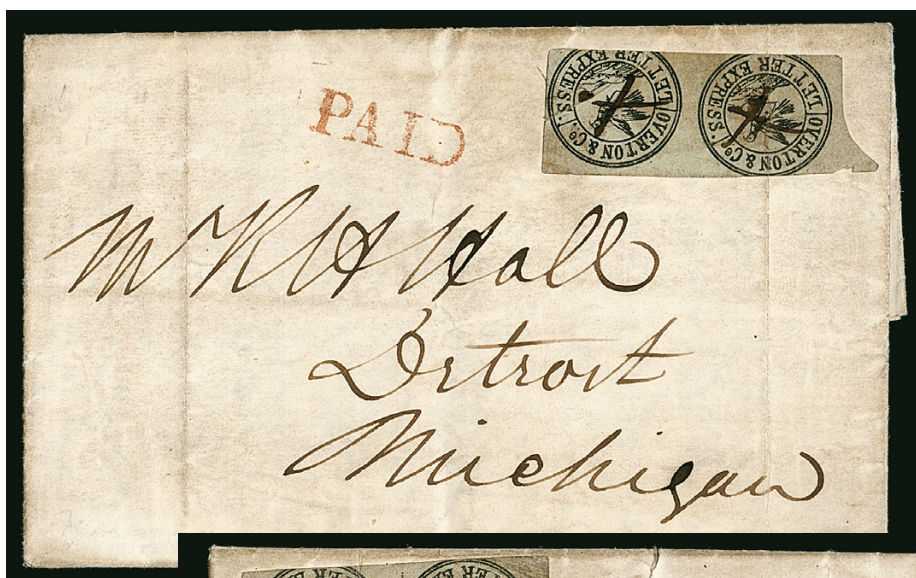 PAID
OVERTON & Co.
LETTER EXPRESS.
OVERTON & Co.
LETTER EXPRESS.
Mr R H Hall
Detroit
Michigan